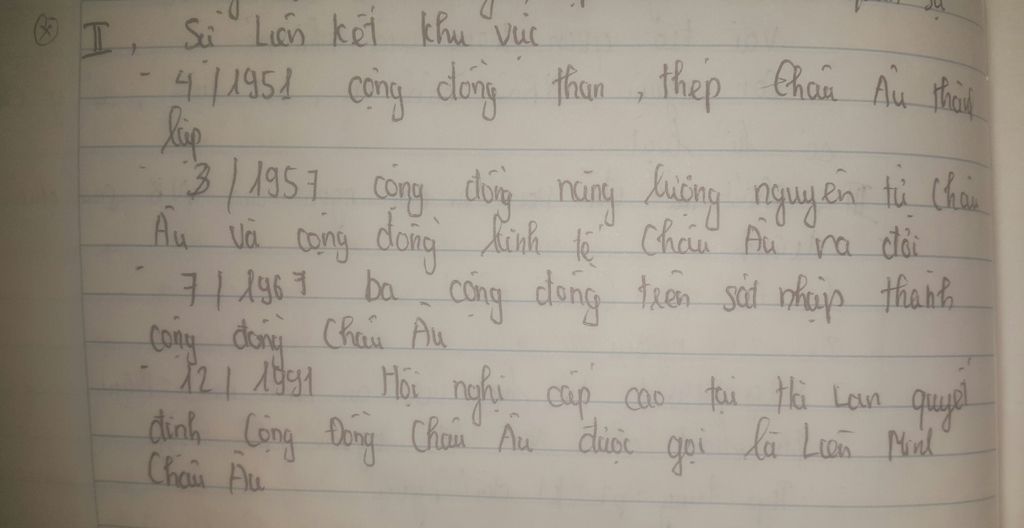 II, Sự Liên kết khu vực
- 4/1951 cộng đồng than, thép Châu Âu thành
lập
- 3/1957 cộng đồng năng lượng nguyên tử Châu
Âu và cộng đồng kinh tế Châu Âu ra đời
- 7/1967 ba cộng đồng trên sát nhập thành
cộng đồng Châu Âu
- 12/1991 Hội nghị cấp cao tại Hà Lan quyết
định Cộng Đồng Châu Âu được gọi là Liên Minh
Châu Âu